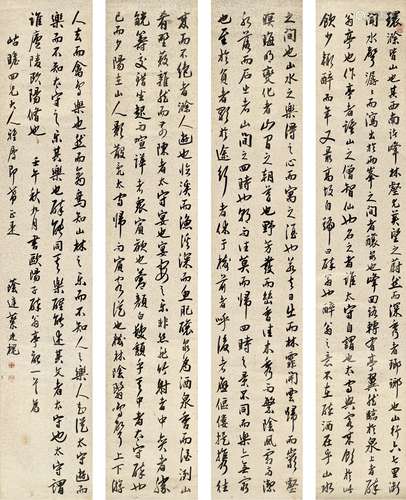 環滁皆山也其西南諸峰林壑尤美望之蔚然而深秀者琅琊也山行六七里漸
聞水聲潺潺而瀉出于兩峯之間者釀泉也峰回路轉有亭翼然臨於泉上者醉
翁亭也作亭者誰山之僧智仙也名之者誰太守自謂也太守與客來飲於此
飲少輒醉而年又最高故自號曰醉翁也醉翁之意不在酒在乎山水
之間也山水之樂得之心而寓之酒也若夫日出而林霏開雲歸而巖穴
暝晦明變化者山間之朝暮也野芳發而幽香佳木秀而繁陰風霜高潔
水落而石出者山間之四時也朝而往暮而歸四時之景不同而樂亦無窮
也至於負者歌於途行者休于樹前者呼後者應傴僂提攜往
來而不絕者滁人遊也臨溪而漁溪深而魚肥釀泉為酒泉香而酒洌山
肴野蔌雜然而前陳者太守宴也宴酣之樂非絲非竹射者中弈者勝
觥籌交錯坐起而諠譁者衆賓歡也蒼顏白髮頹乎其中者太守醉也
已而夕陽在山人影散亂太守歸而賓客從也樹林陰翳鳴聲上下遊
人去而禽鳥樂也然而禽鳥知山林之樂而不知人之樂人知從太守遊而
樂而不知太守之樂其樂也醉能同其樂醒能述其文者太守也太守謂
誰廬陵歐陽脩也 壬午秋九月書歐陽子醉翁亭記一首為
岵瞻四兄大人雅屬即希正是 蔭廷葉元